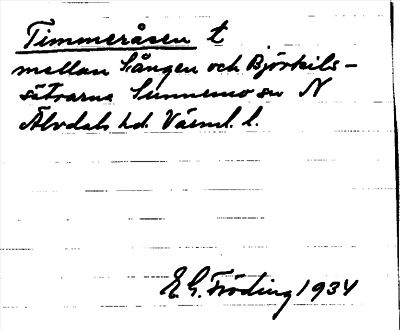 Timmeråsen t
mellan Lången och Björkils-
sätrarna Sunnemo sn N
Älvdals hd. Värml. l.
E. G. Fröding 1934